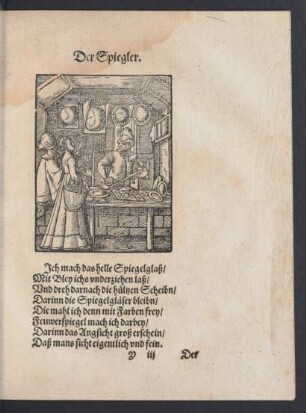 Der Spiegler.
Ich mach das helle Spiegelglaß/
Mit Bley ichs vnderziehen laß/
Vnd dreh darnach die hültzen Scheibn/
Darinn die Spiegelgläser bleibn/
Die mahl ich denn mit Farben frey/
Feuwerspiegel mach ich darbey/
Darinn das Angsicht groß erschein/
Daß mans sicht eigentlich vnd fein.
Y iij Der